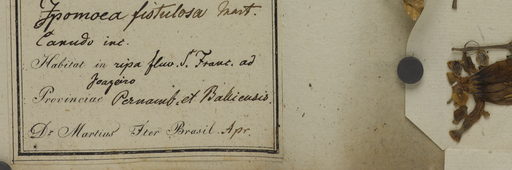 Ipomoea fistulosa Mart.
Canudo inc.
Habitat in ripa fluv. S. Franc. ad
Joazeiro
Provinciae Pernamb. et Bahiensis.
Dr. Martius Iter Brasil. Apr.